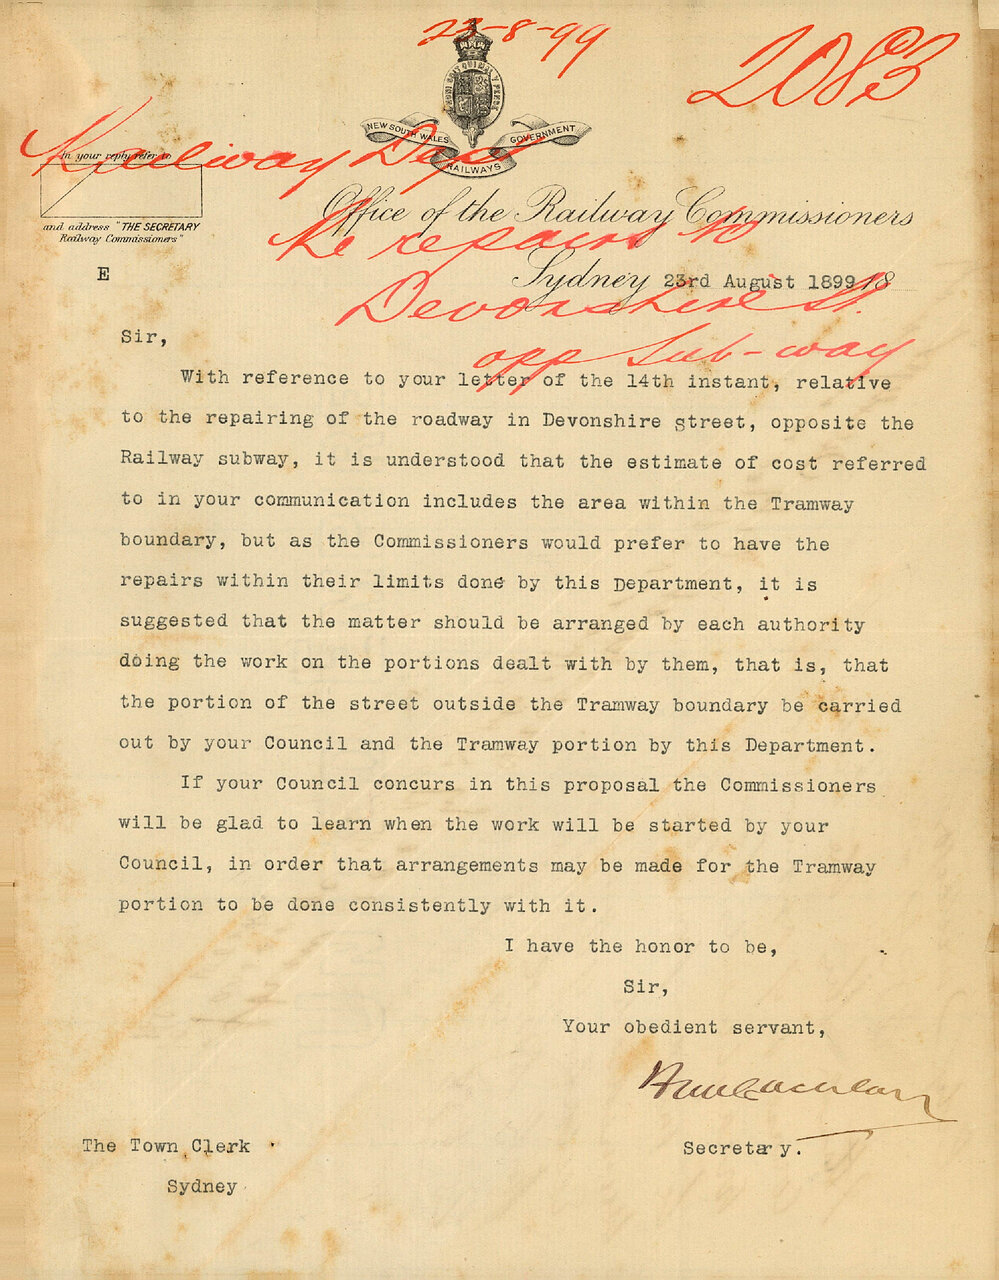 23-8-99
2083
NEW SOUTH WALES GOVERNMENT
RAILWAYS
Railway Dept
In your reply refer to
and address "THE SECRETARY
Railway Commissioners"
Office of the Railway Commissioners
Re repairs to
Sydney 23rd August 1899 18
E
Devonshire St.
opp Sub-way
Sir,
With reference to your letter of the 14th instant, relative
to the repairing of the roadway in Devonshire street, opposite the
Railway subway, it is understood that the estimate of cost referred
to in your communication includes the area within the Tramway
boundary, but as the Commissioners would prefer to have the
repairs within their limits done by this Department, it is
suggested that the matter should be arranged by each authority
doing the work on the portions dealt with by them, that is, that
the portion of the street outside the Tramway boundary be carried
out by your Council and the Tramway portion by this Department.
If your Council concurs in this proposal the Commissioners
will be glad to learn when the work will be started by your
Council, in order that arrangements may be made for the Tramway
portion to be done consistently with it.
I have the honor to be,
Sir,
Your obedient servant,
Secretary.
The Town Clerk
Sydney